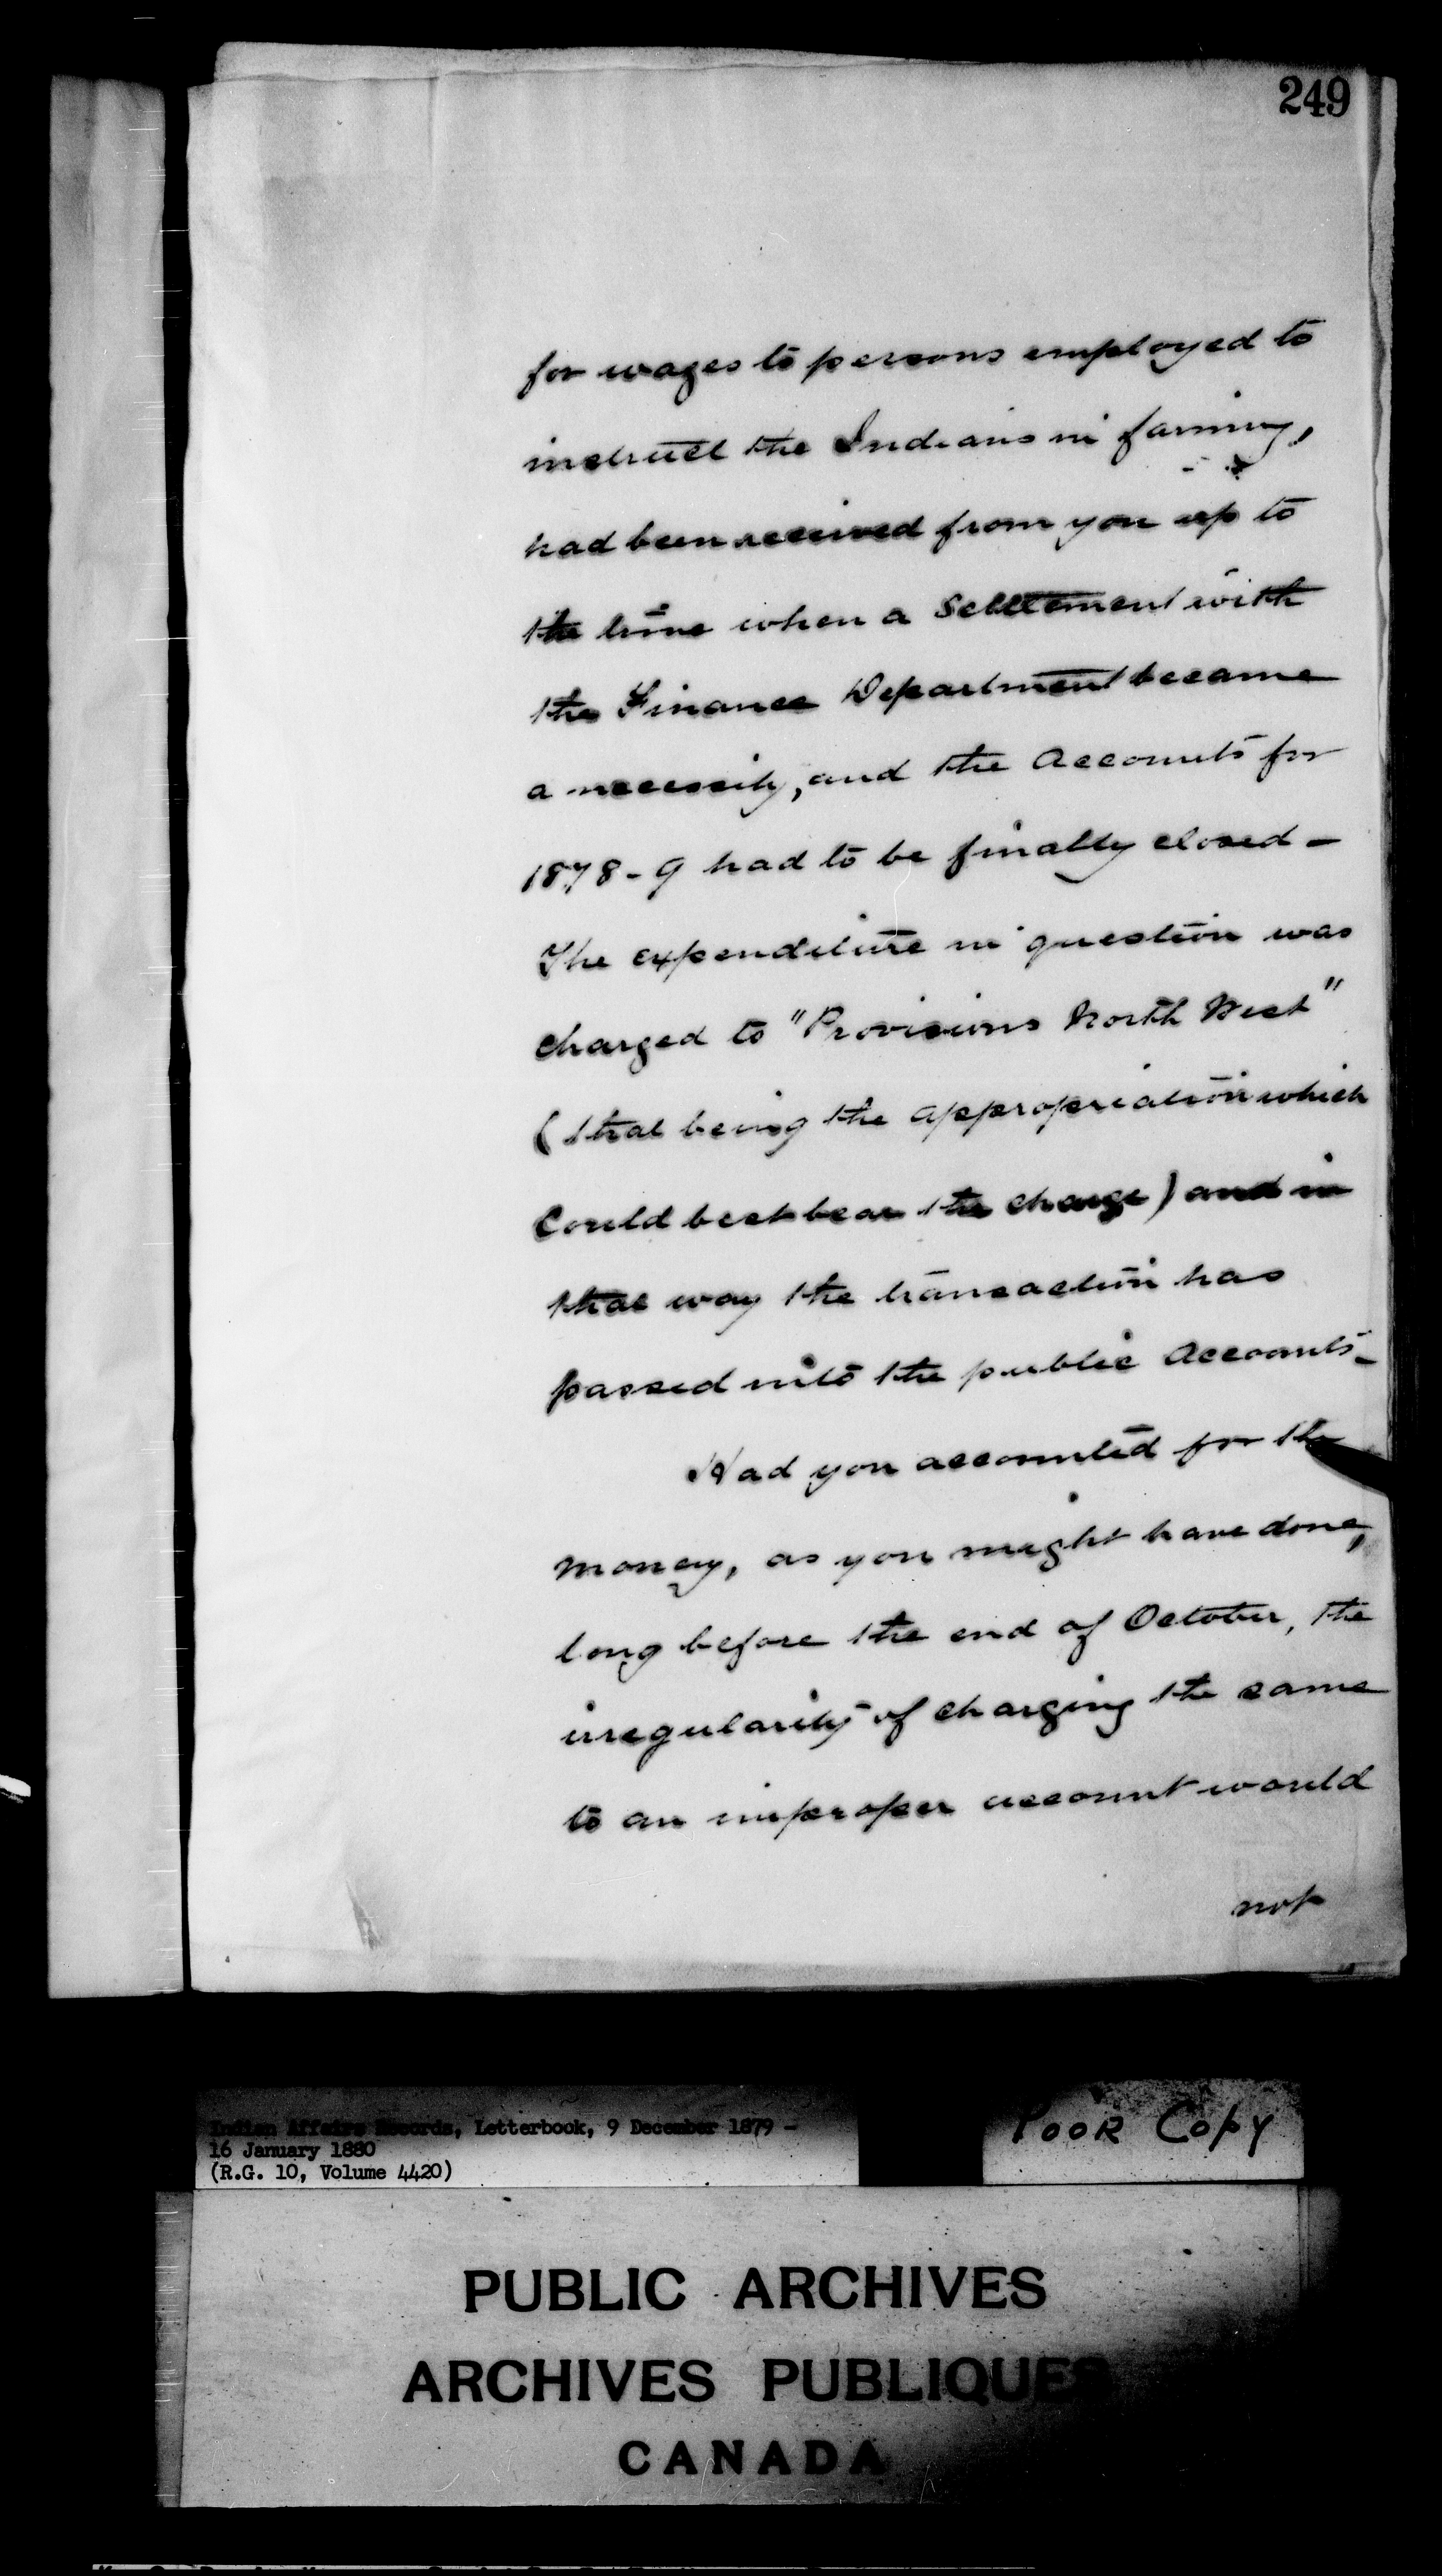 249
for wages to persons employed to
instruct the Indians in farming,
had been received from you up to
the time when a Settlement with
the Finance Department became
a necessity, and the Accounts for
1878-9 had to be finally closed -
The expenditure in question was
charged to "Provisions North West"
(that being the appropriation which
Could best bear the charge) and in
that way the transaction has
passed into the public Accounts -
Had you accounted for the
money, as you might have done,
long before the end of October, the
irregularity of charging the same
to an improper account would
not
Indian Affairs Records, Letterbook, 9 December 1879 -
16 January 1880
(R.G. 10, Volume 4420)
POOR COPY
PUBLIC ARCHIVES
ARCHIVES PUBLIQUES
CANADA